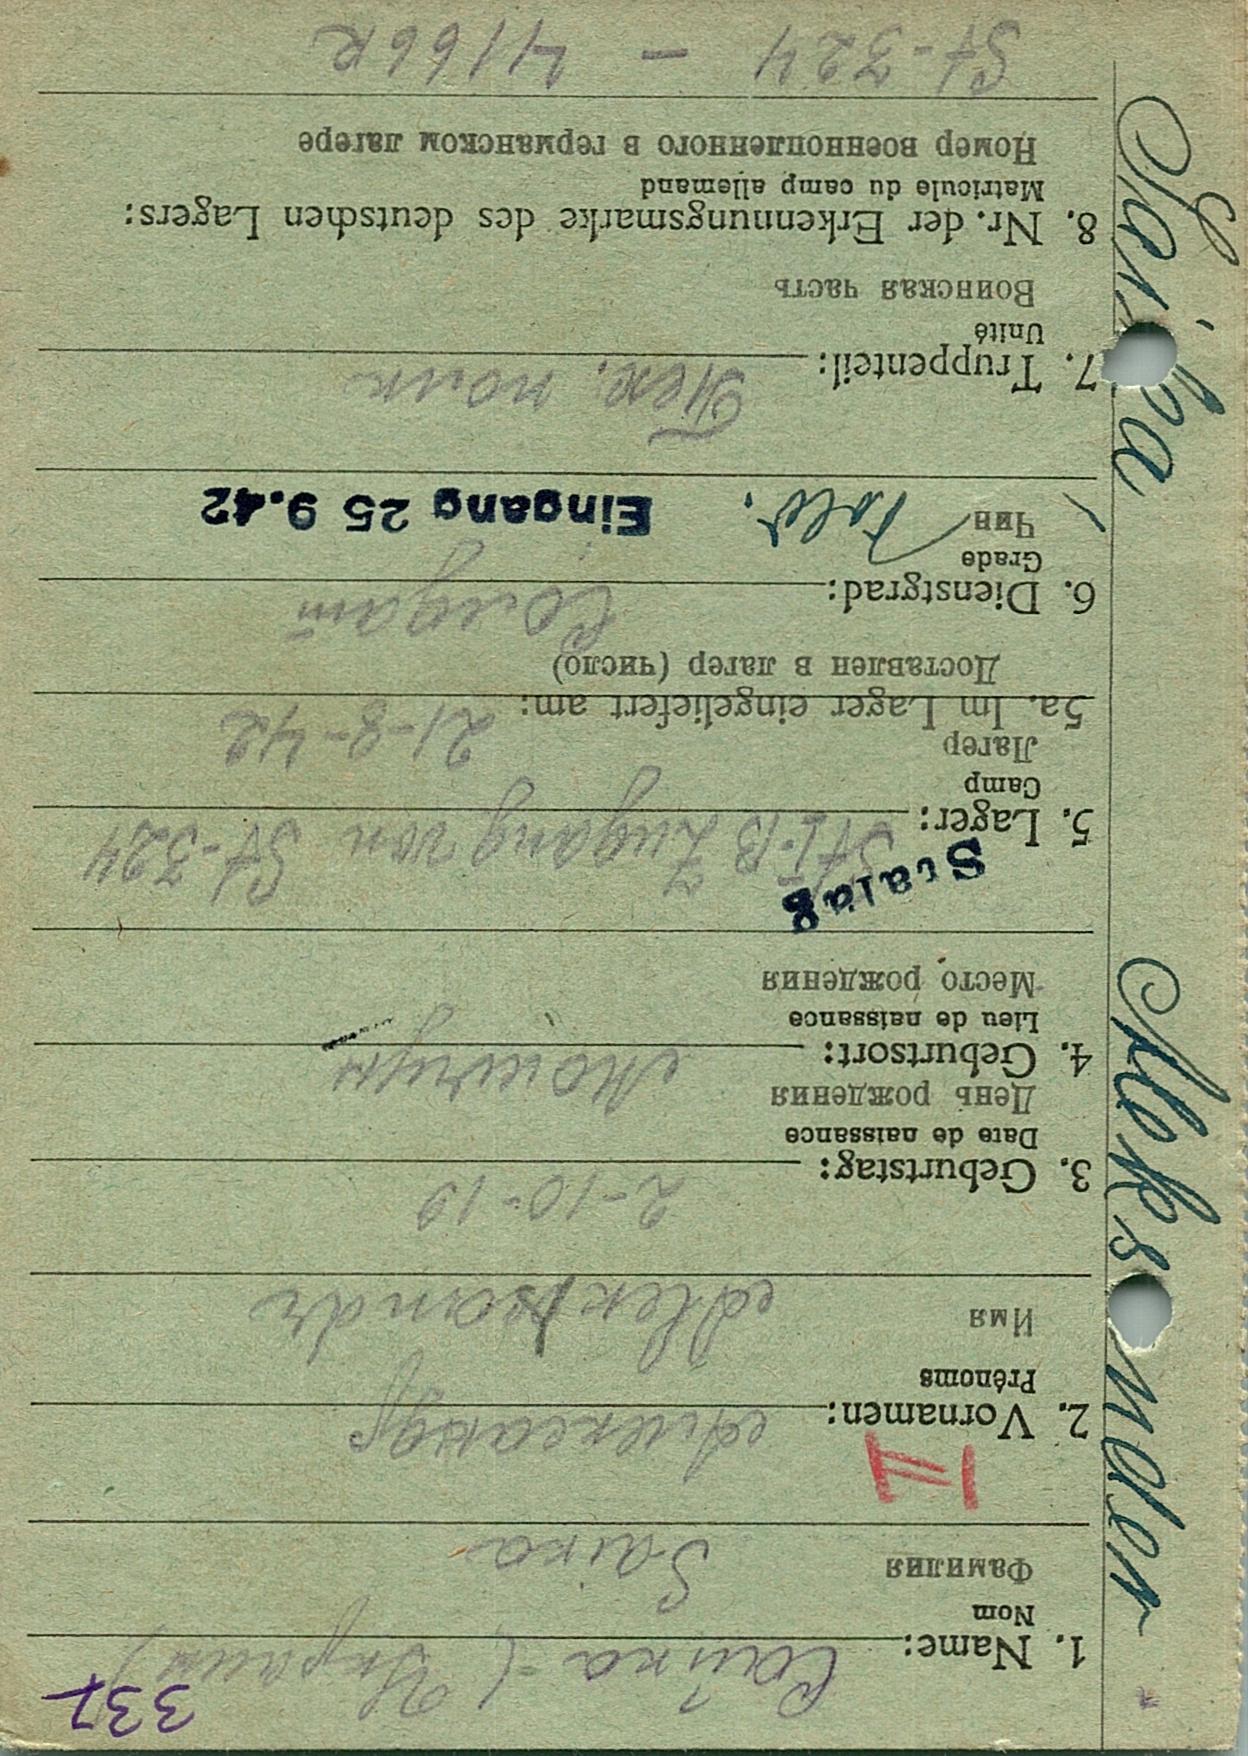 337
1. Name: Сайка - (Украин)
Nom
Фамилия Saika
2. Vornamen: Александр
Prénoms
Имя Aleksandr
II
3. Geburtstag: 2-10-19
Date de naissance
День рождения
4. Geburtsort:
Lieu de naissance
Место рождения
Stalag
5. Lager: St I-B Zugang von St-324
Camp
Лагер
5a. Im Lager eingeliefert am: 21-8-42
Доставлен в лагер (число)
6. Dienstgrad: Солдат
Grade
Чин Sold. Eingang 25 9.42
7. Truppenteil: Пех. полк
Unité
Воинская часть
8. Nr. der Erkennungsmarke des deutschen Lagers:
Matricule du camp allemand
Номер военнопленного в германском лагере
St-324 - 4166R
Saika Aleksander